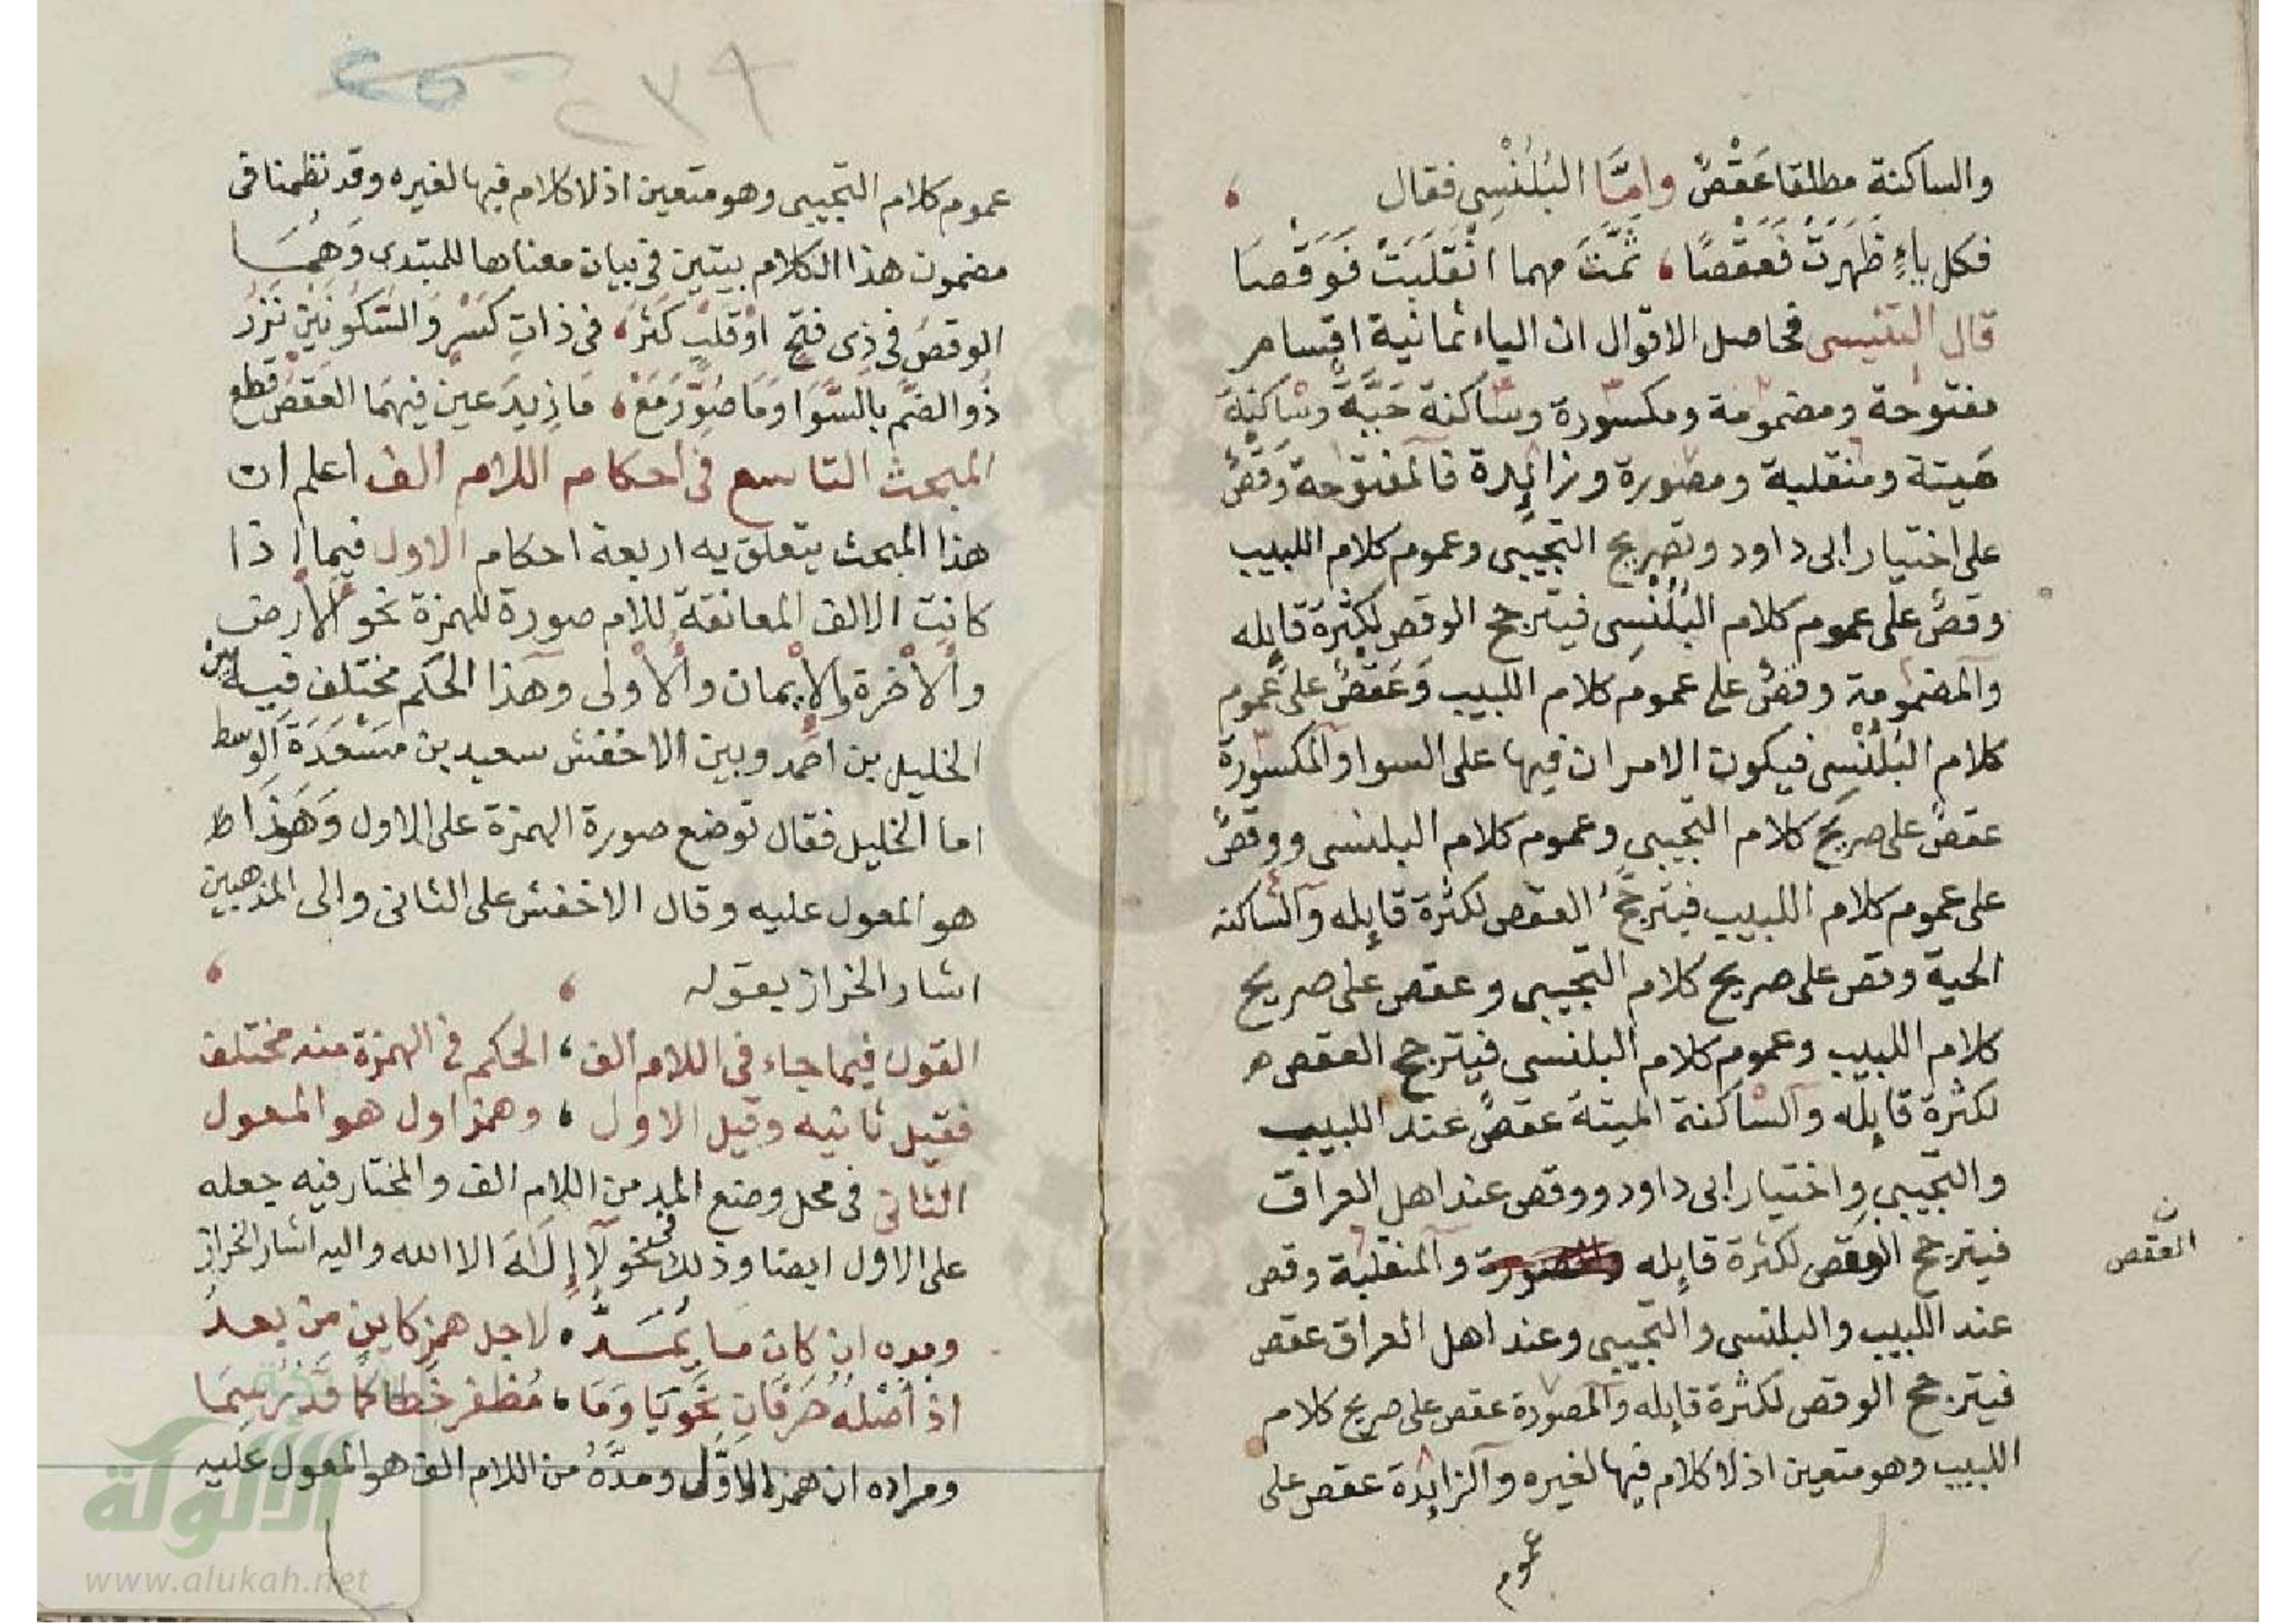 والساكنة مطلقا عَقْصٌ وامَّا البُلُنْسِى فقال
فكل ياءٍ ظَهَرَتْ فَعَقْصًا، ثُمَّتَ مهما انْقَلَبَتْ فَوَقْصَا
قال التنسى فحاصل الاقوال ان الياء ثمانية اقسام
مفتوحة ومضمومة ومكسورة وساكنة حَيَّةٌ وساكنة
مَيتة ومنقلبة ومصورة وزائدة فالمفتوحة وَقْصٌ
على اختيار ابى داود وتصريح التجيبى وعموم كلام اللبيب
وقصٌ على عموم كلام البُلُنْسِى فيترجح الوقص لكثرة قايله
والمضمومة وقصٌ على عموم كلام اللبيب وَعَقْصٌ على عموم
كلام البُلُنْسِى فيكون الامران فيها على السوا والمكسورة
عقصٌ على صريح كلام التجيبى وعموم كلام البلنسى ووقصٌ
على عموم كلام اللبيب فيترجح العقص لكثرة قايله والساكنة
الحية وقص على صريح كلام التجيبى وعقص على صريح
كلام اللبيب وعموم كلام البلنسى فيترجح العقص
لكثرة قايله والساكنة الميتة عقصٌ عند اللبيب
والتجيبى واختيار ابى داود ووقص عند اهل العراق
فيترجح الوقص لكثرة قايله والمنقلبة وقص
العقص
عند اللبيب والبلنسى والتجيبى وعند اهل العراق عقص
فيترجح الوقص لكثرة قايله والمصورة عقص على صريح كلام
اللبيب وهو متعين اذ لا كلام فيها لغيره والزايدة عقص على
عموم
٢٣٩
عموم كلام التجيبى وهو متعين اذ لا كلام فيها لغيره وقد نظمنا فى
مضمون هذا الكلام بيتين فى بيان معناها للمبتدى وَهُمَا
الوقصُ فى ذِى فتحٍ اوْ قلبٍ كَثُرَ، فى ذاتِ كَسْرٍ وَالسُّكُونَيْنِ نَزُرْ
ذُو الضمِّ بالسَّوَا وَمَا صُوِّرَ مَعْ، مَا زِيدَ عين فيهمَا العَقْصُ قطع
المبحث التاسع فى احكام اللام الف اعلم ان
هذا المبحث يتعلق به اربعة احكام الاول فيما اذا
كانت الالف المعانقة للام صورة للهمزة نحو الأرض
والأخرة والإيمان والأولى وهذا الحكم مختلف فيه بين
الخليل بن احمد وبين الاخفش سعيد بن مَسْعَدَةَ الَوسط
اما الخليل فقال توضع صورة الهمزة على الاول وَهَذَا
هو المعول عليه وقال الاخفش على الثانى والى المذهبين
اشار الخراز بقوله
القول فيما جاء فى اللام الف، الحكم فى الهمزة منه مختلف
فقيل ثانيه وقيل الاول، وهمز اول هو المعول
الثانى فى محل وضع المد من اللام الف والمختار فيه جعله
على الاول ايضا وذلك نحو لَآ إِلَهَ الا الله واليه اشار الخراز
وبعده ان كان ما يُمَدُّ، لاجل همزٍ كاين من بعدُ
اذ أَصْلُهُ حَرْفَانِ نَحْوُ يَا وَمَا، مُظفر خَطا كمَا قَدْ رُسِمَا
ومراده ان همز الاَوَّل ومدَّهُ من اللام الف هو المعول عليه
الألوكة
www.alukah.net